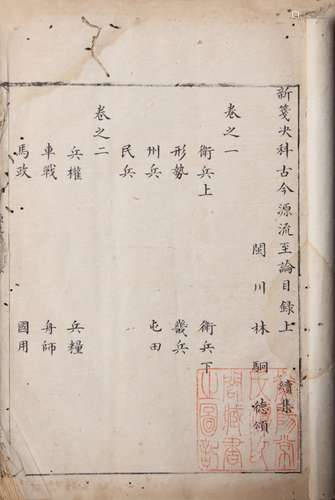 新箋决科古今源流至論目録上 續集
閩川林駉德頌
卷之一
衛兵上 衛兵下
形勢 畿兵
州兵 屯田
民兵
卷之二
兵權 兵糧
車戰 舟師
馬政 國用